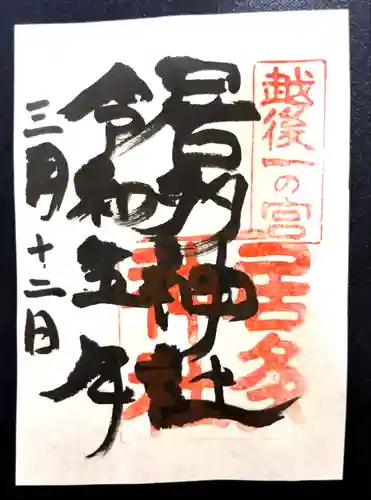 越後一の宮
居多神社
居多神社
令和五年
三月十二日